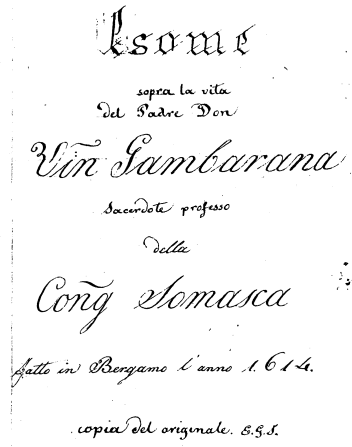 Esame
sopra la vita
del Padre Don
Viñ Gambarana
Sacerdote professo
della
Coñg Somasca
fatto in Bergamo l'anno 1.614.
copia del originale. S.G.S.